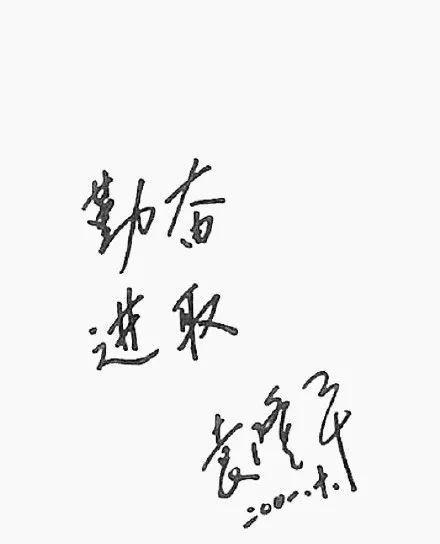 勤奋
进取
袁隆平
2001.十.